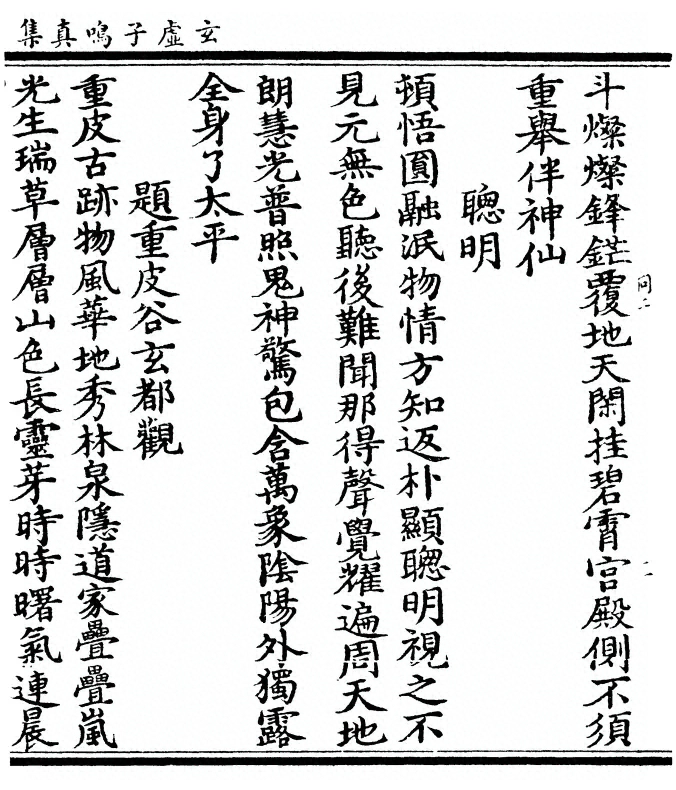 玄虛子鳴真集
斗燦燦鋒鋩覆地天閑挂碧霄宮殿側不須
重舉伴神仙
聰明
頓悟圓融泯物情方知返朴顯聰明視之不
見元無色聽後難聞那得聲覺耀遍周天地
朗慧光普照鬼神驚包含萬象陰陽外獨露
全身了太平
題重皮谷玄都觀
重皮古跡物風華地秀林泉隱道家疊疊嵐
光生瑞草層層山色長靈芽時時曙氣連晨
同二
二